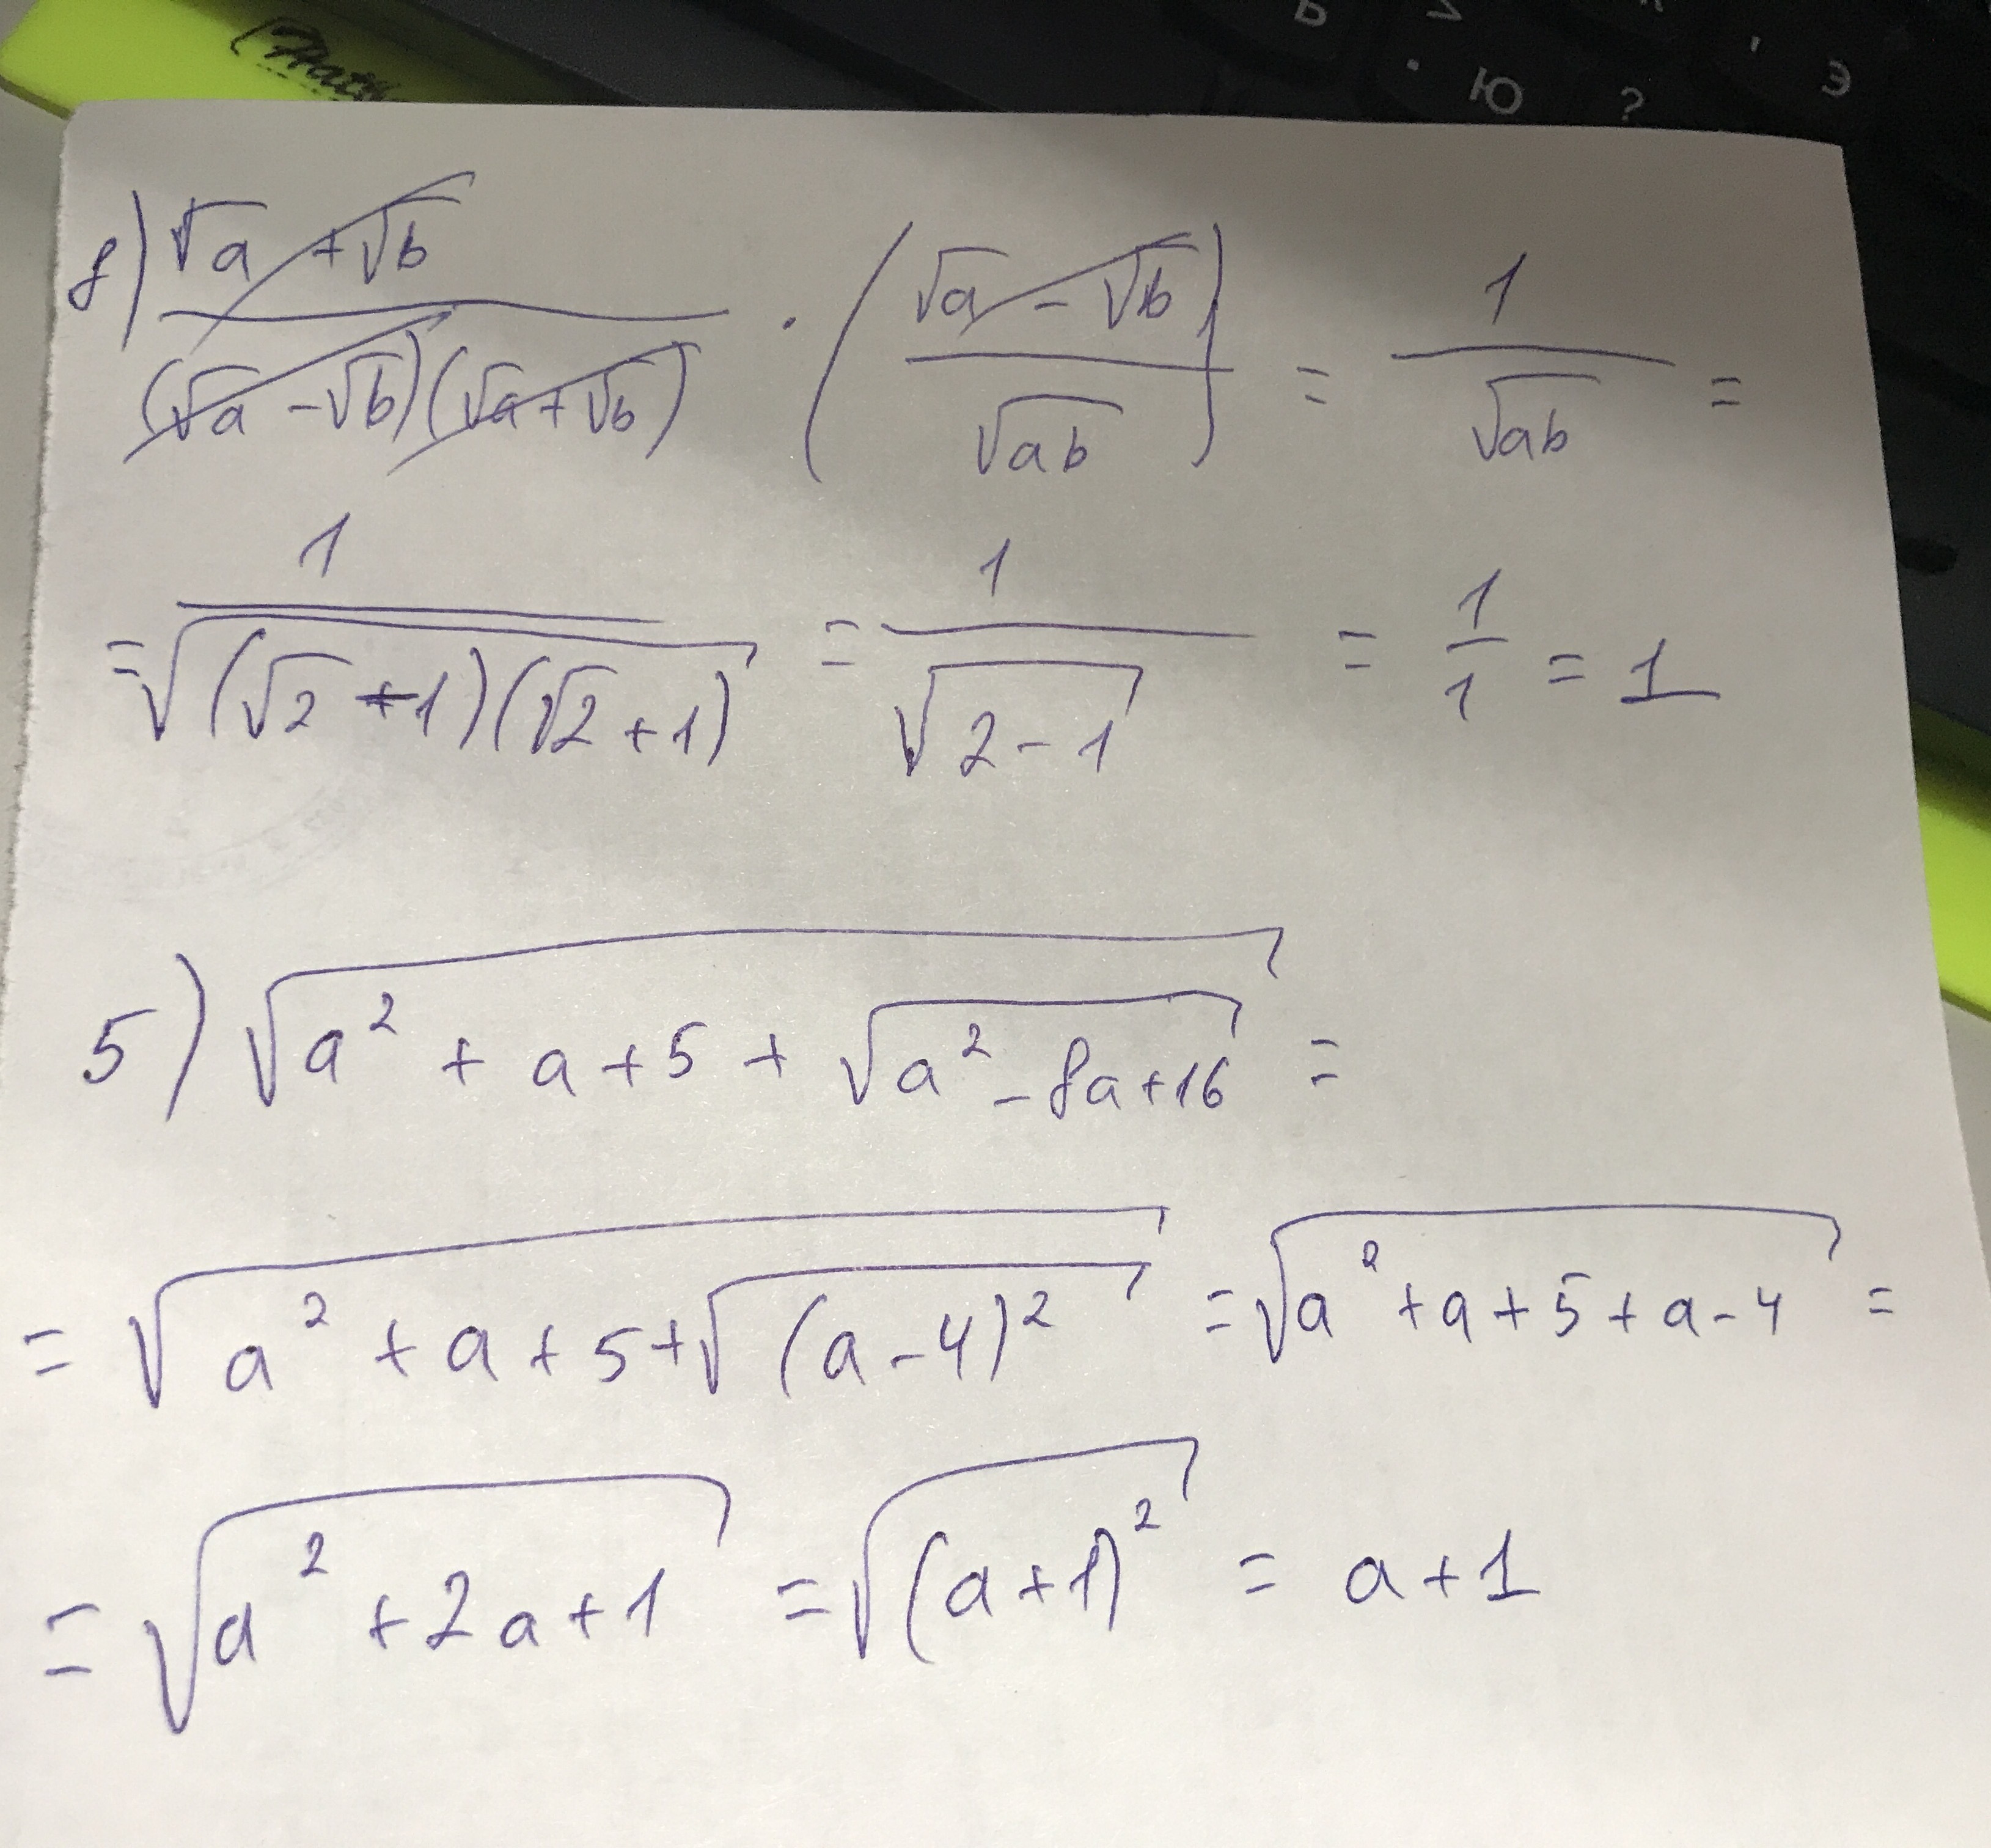 (Матем
Б
Ю
?
Э
8) (√a + √b)/((√a - √b)(√a + √b)) · ((√a - √b)/√ab) = 1/√ab =
= 1/√((√2 + 1)(√2 + 1)) = 1/√(2 - 1) = 1/1 = 1
5) √(a² + a + 5 + √(a² - 8a + 16)) =
= √(a² + a + 5 + √((a - 4)²)) = √(a² + a + 5 + a - 4) =
= √(a² + 2a + 1) = √((a + 1)²) = a + 1